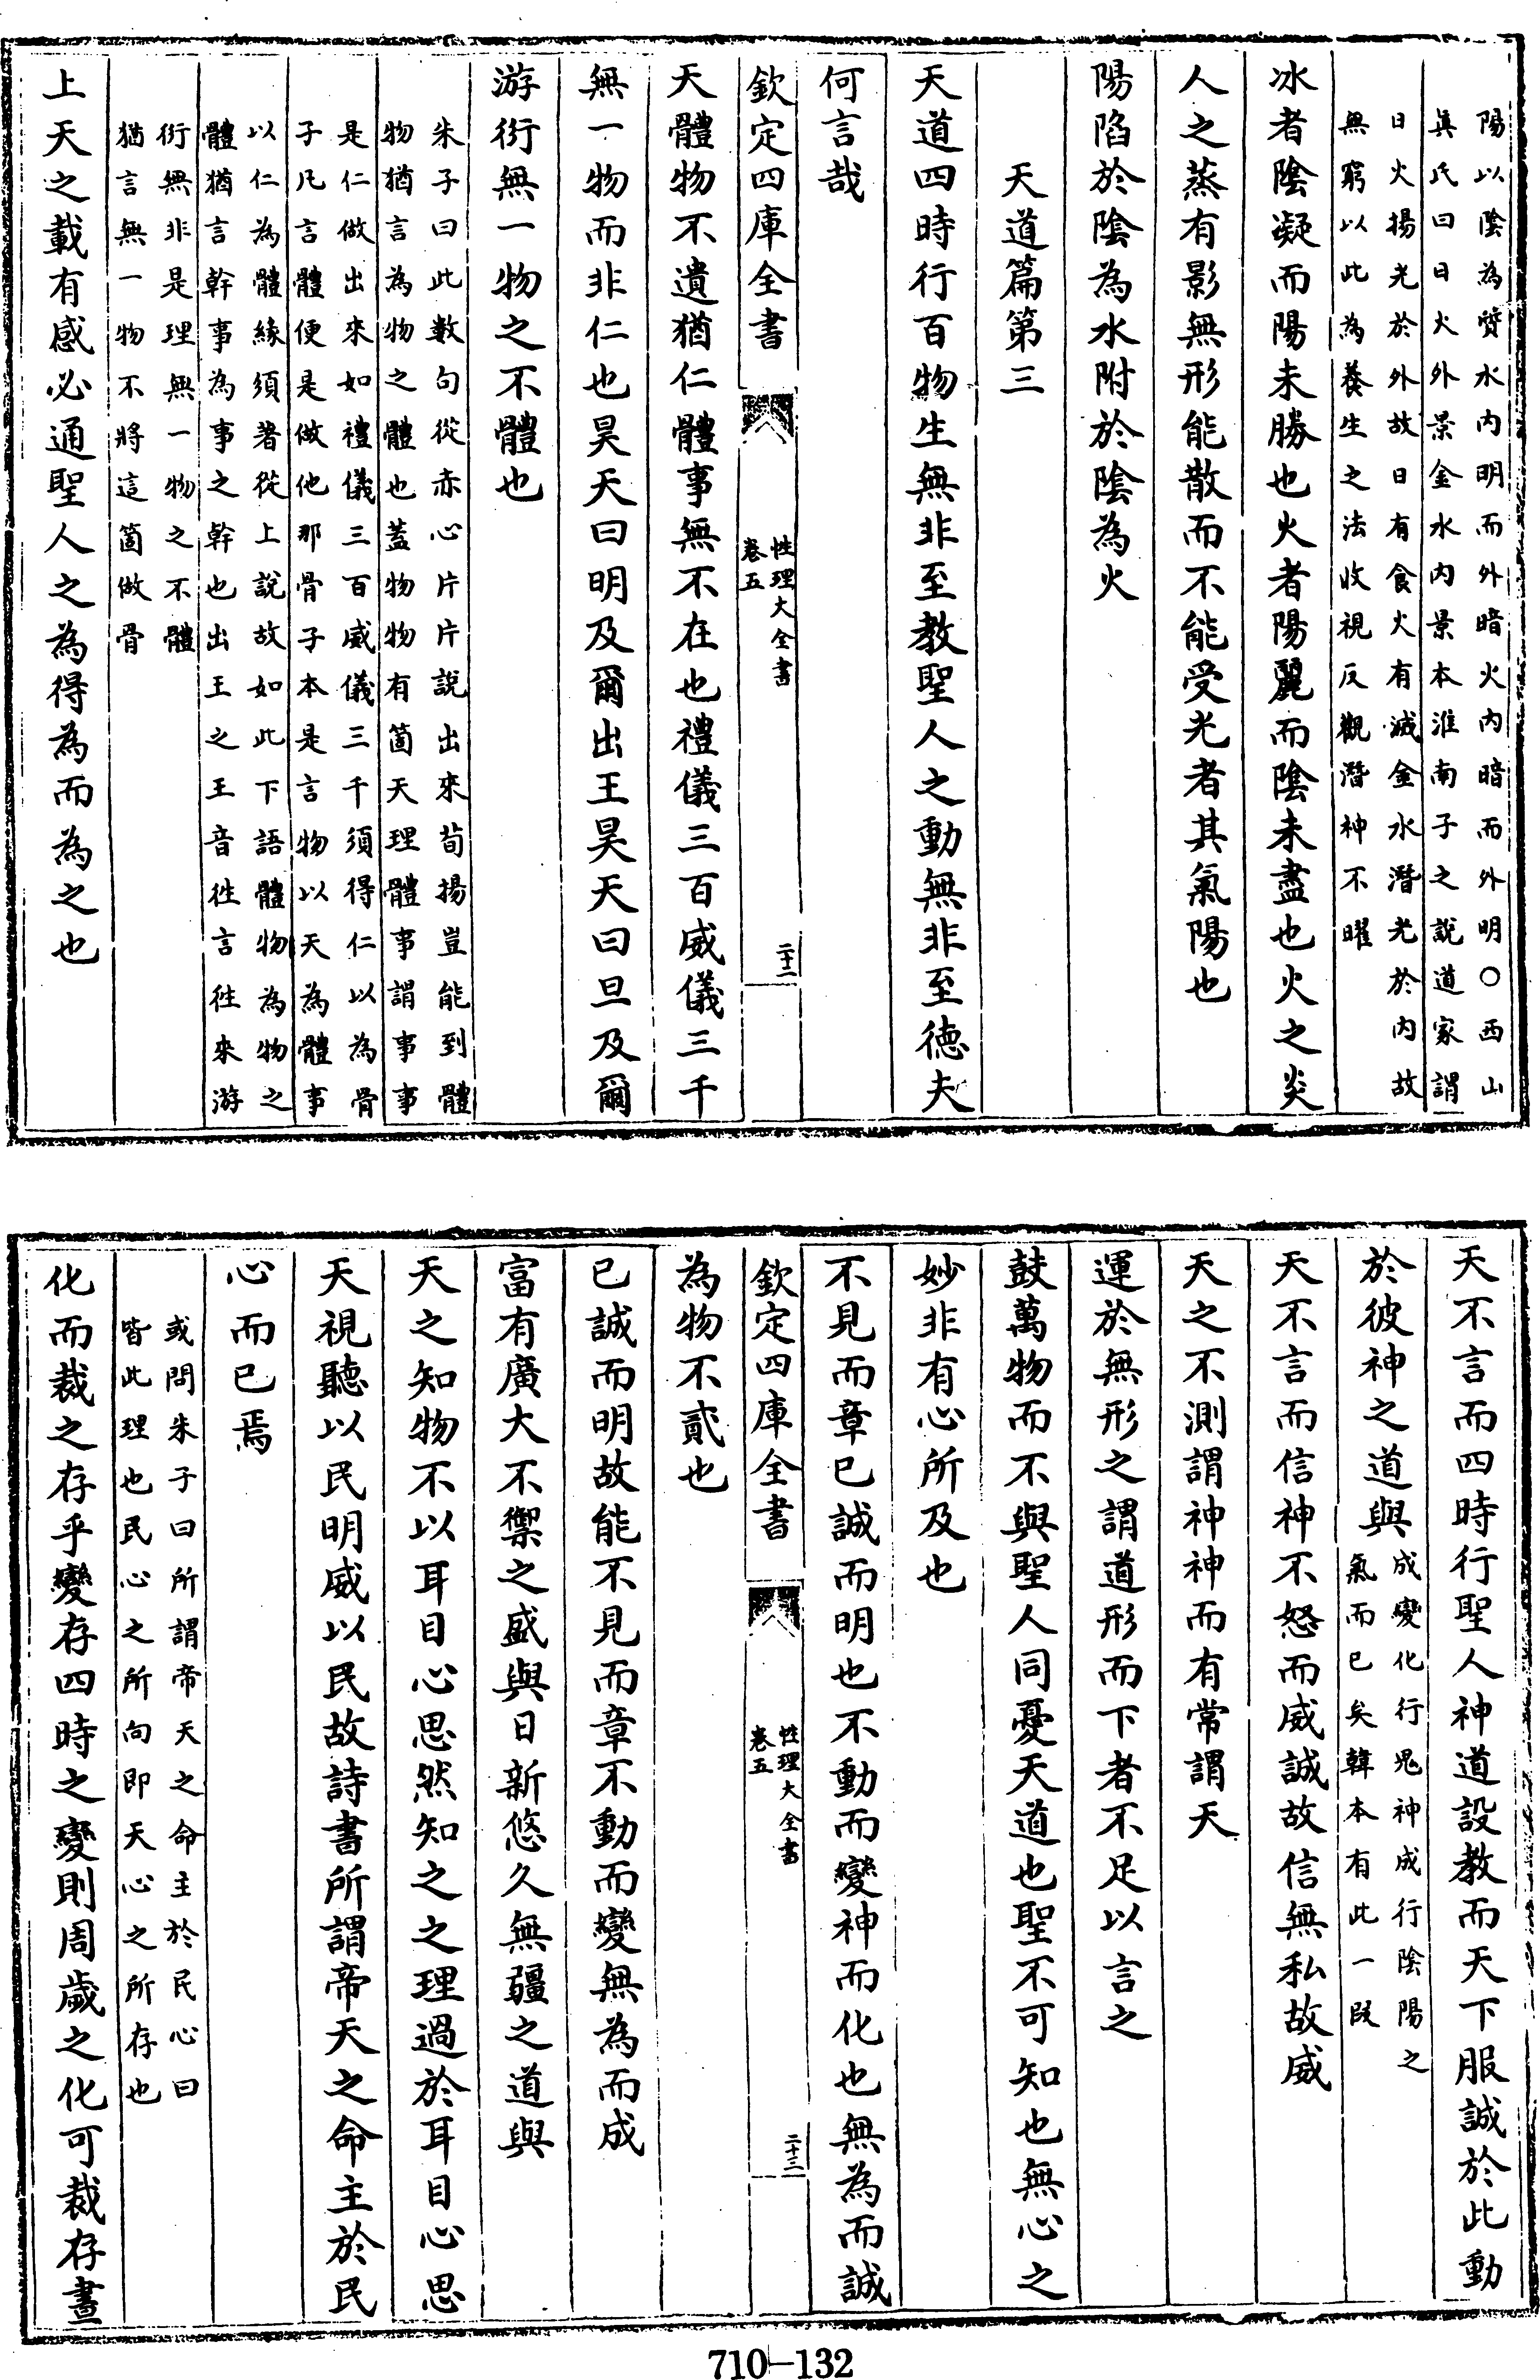 陽以陰為質水內明而外暗火內暗而外明○西山
真氏曰日火外景金水內景本淮南子之說道家謂
日火揚光於外故日有食火有滅金水潛光於內故
無窮以此為養生之法收視反觀潛神不曜
冰者陰凝而陽未勝也火者陽麗而陰未盡也火之炎
人之蒸有影無形能散而不能受光者其氣陽也
陽陷於陰為水附於陰為火
天道篇第三
天道四時行百物生無非至教聖人之動無非至德夫
何言哉
欽定四庫全書
性理大全書
卷五
二十二
天體物不遺猶仁體事無不在也禮儀三百威儀三千
無一物而非仁也昊天曰明及爾出王昊天曰旦及爾
游衍無一物之不體也
朱子曰此數句從赤心片片說出來荀揚豈能到體
物猶言為物之體也蓋物物有箇天理體事謂事事
是仁做出來如禮儀三百威儀三千須得仁以為骨
子凡言體便是做他那骨子本是言物以天為體事
以仁為體緣須著從上說故如此下語體物為物之
體猶言幹事為事之幹也出王之王音徃言徃來游
衍無非是理無一物之不體
猶言無一物不將這箇做骨
上天之載有感必通聖人之為得為而為之也
天不言而四時行聖人神道設教而天下服誠於此動
於彼神之道與
成變化行鬼神成行陰陽之
氣而已矣韓本有此一段
天不言而信神不怒而威誠故信無私故威
天之不測謂神神而有常謂天
運於無形之謂道形而下者不足以言之
鼓萬物而不與聖人同憂天道也聖不可知也無心之
妙非有心所及也
不見而章已誠而明也不動而變神而化也無為而誠
欽定四庫全書
性理大全書
卷五
二十三
為物不貳也
已誠而明故能不見而章不動而變無為而成
富有廣大不禦之盛與日新悠久無疆之道與
天之知物不以耳目心思然知之之理過於耳目心思
天視聽以民明威以民故詩書所謂帝天之命主於民
心而已焉
或問朱子曰所謂帝天之命主於民心曰
皆此理也民心之所向即天心之所存也
化而裁之存乎變存四時之變則周歲之化可裁存晝
710-132